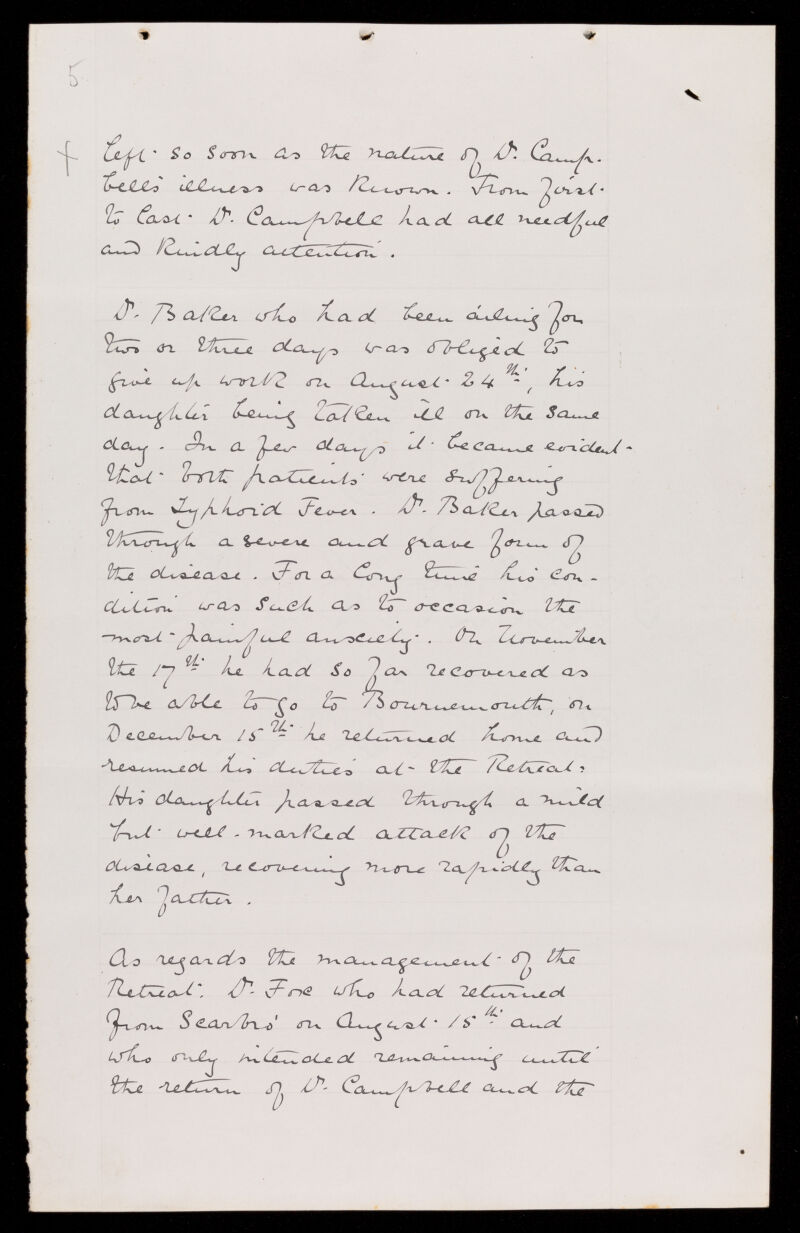 5
+ left so soon as the nature of Dr. Camp-
bell's illness was known. From first
to last Dr. Campbell had all needful
and kindly attention.
Dr. Baker who had been ailing for
two or three days was obliged to
give up work on August 24th, his
daughter being taken ill on the same
day. In a few days it became evident
that both patients were suffering
from Typhoid Fever. Dr. Baker passed
through a severe and grave form of
the disease. For a long time his con-
dition was such as to occasion the
most painful anxiety. On November
the 17th he had so far recovered as
to be able to go to Bournemouth, on
December 15th he returned home and
resumed his duties at the Retreat.
His daughter passed through a mild
but well-marked attack of the
disease, recovering more rapidly than
her father.
As regards the management of the
Retreat. Dr. Fox who had returned
from Scarbro' on August 15th and
who only intended remaining until
the return of Dr. Campbell and the